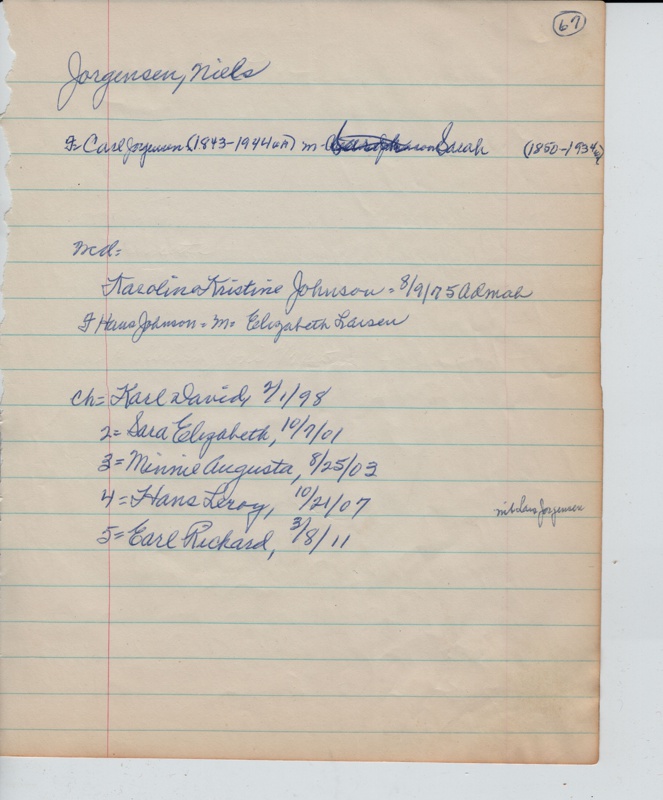 67
Jorgensen, Niels
F= Carl Jorgensen (1843-1944) m= Sarah (1850-1934)
md=
Karoline Kristine Johnson = 8/9/75 Admah
F Hans Johnson = m= Elizabeth Larsen
ch= Karl David, 2/1/98
2= Sara Elizabeth, 10/7/01
3= Minnie Augusta, 8/25/03
4= Hans Leroy, 10/21/07
Jorgensen
5= Earl Richard, 3/8/11